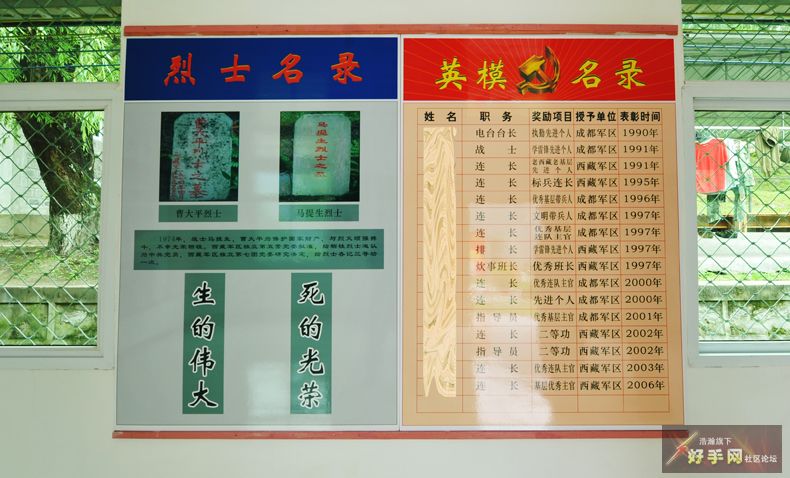 烈士名录
曹大平烈士之墓
马提生烈士之墓
曹大平烈士
马提生烈士
生的伟大
死的光荣
英模名录
姓名 职务 奖励项目 授予单位 表彰时间
电台台长 执勤先进个人 成都军区 1990年
战士 学雷锋先进个人 成都军区 1991年
连长 老西藏老基层先进个人 西藏军区 1991年
连长 标兵连长 西藏军区 1995年
连长 优秀基层带兵人 成都军区 1996年
连长 文明带兵人 成都军区 1997年
连长 优秀基层连队主官 成都军区 1997年
排长 学雷锋先进个人 西藏军区 1997年
炊事班长 优秀班长 西藏军区 1997年
连长 优秀连队主官 成都军区 2000年
连长 先进个人 成都军区 2000年
指导员 优秀基层主官 成都军区 2001年
连长 二等功 西藏军区 2002年
指导员 二等功 西藏军区 2002年
连长 优秀连队主官 西藏军区 2003年
连长 基层优秀主官 西藏军区 2006年
浩瀚旗下
好手网社区论坛